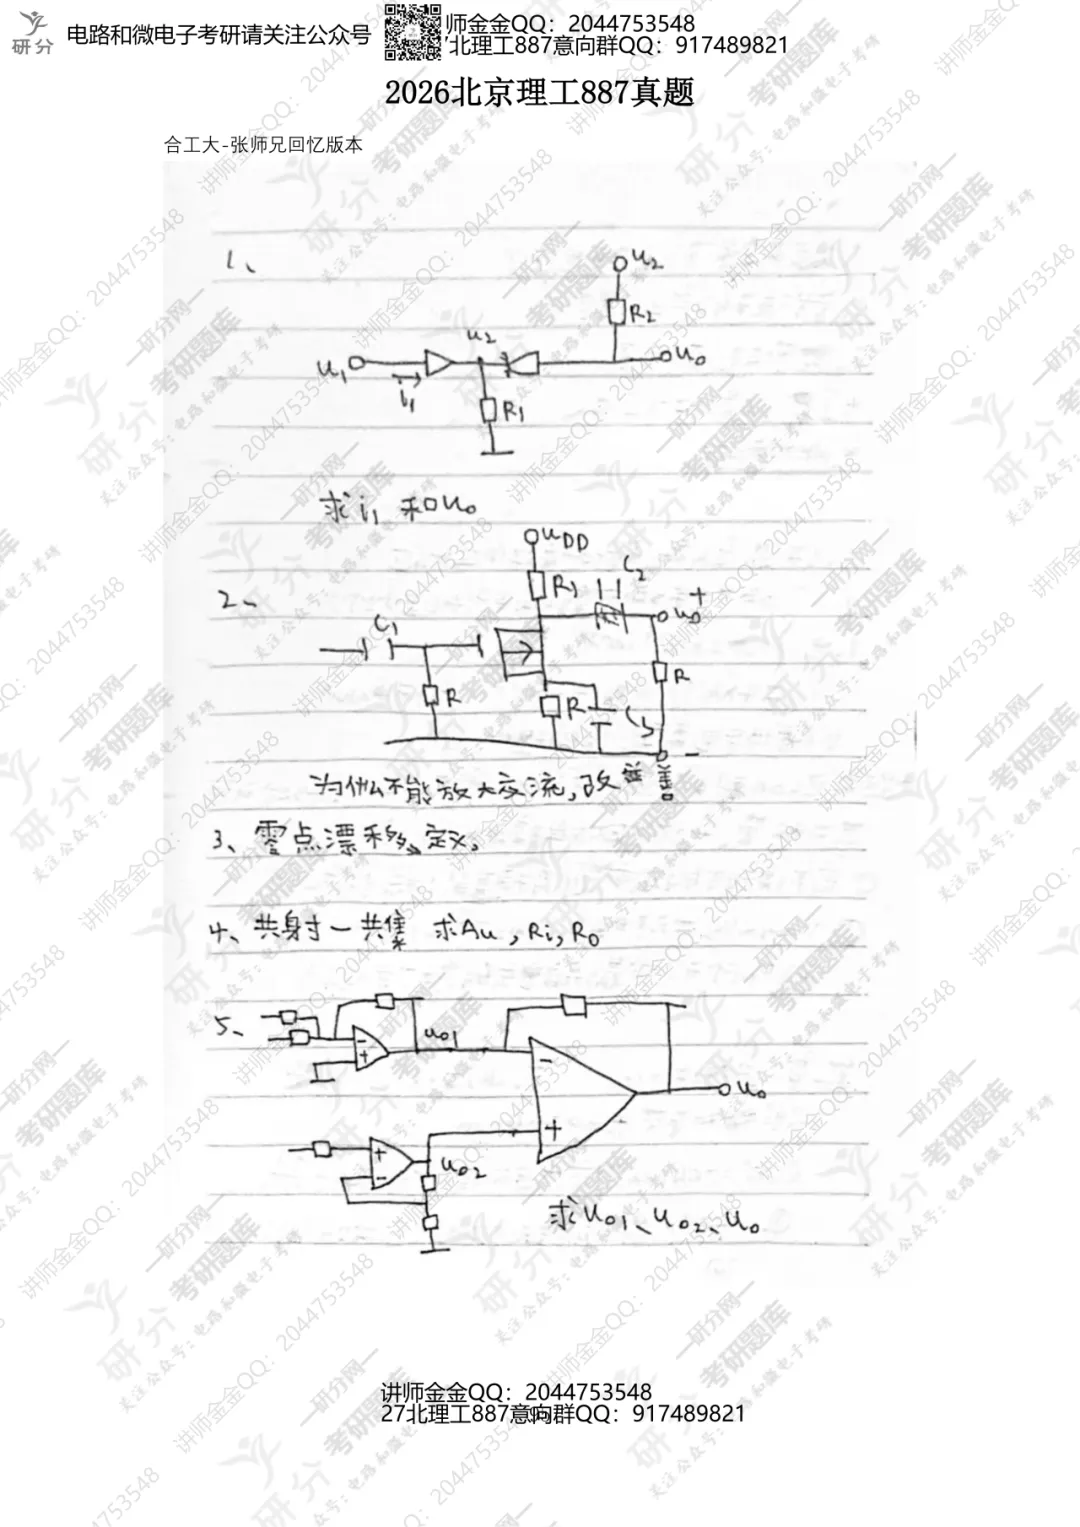 研分
电路和微电子考研请关注公众号
师金金QQ：2044753548
北理工887意向群QQ：917489821
2026北京理工887真题
合工大-张师兄回忆版本
1、
u2
R2
u2
u1
uo
i1
R1
求i1和uo
uDD
2、
R
C2
C1
uo
+
R
R
R
C3
-
为什么不能放大交流，改善。
3、零点漂移，定义。
4、共射-共集 求Au，Ri，Ro
5、
-
+
uo1
-
+
uo
+
-
uo2
求uo1、uo2、uo
讲师金金QQ：2044753548
27北理工887意向群QQ：917489821
研分
研分网
考研题库
关注公众号：电路和微电子考研
讲师金金QQ：2044753548